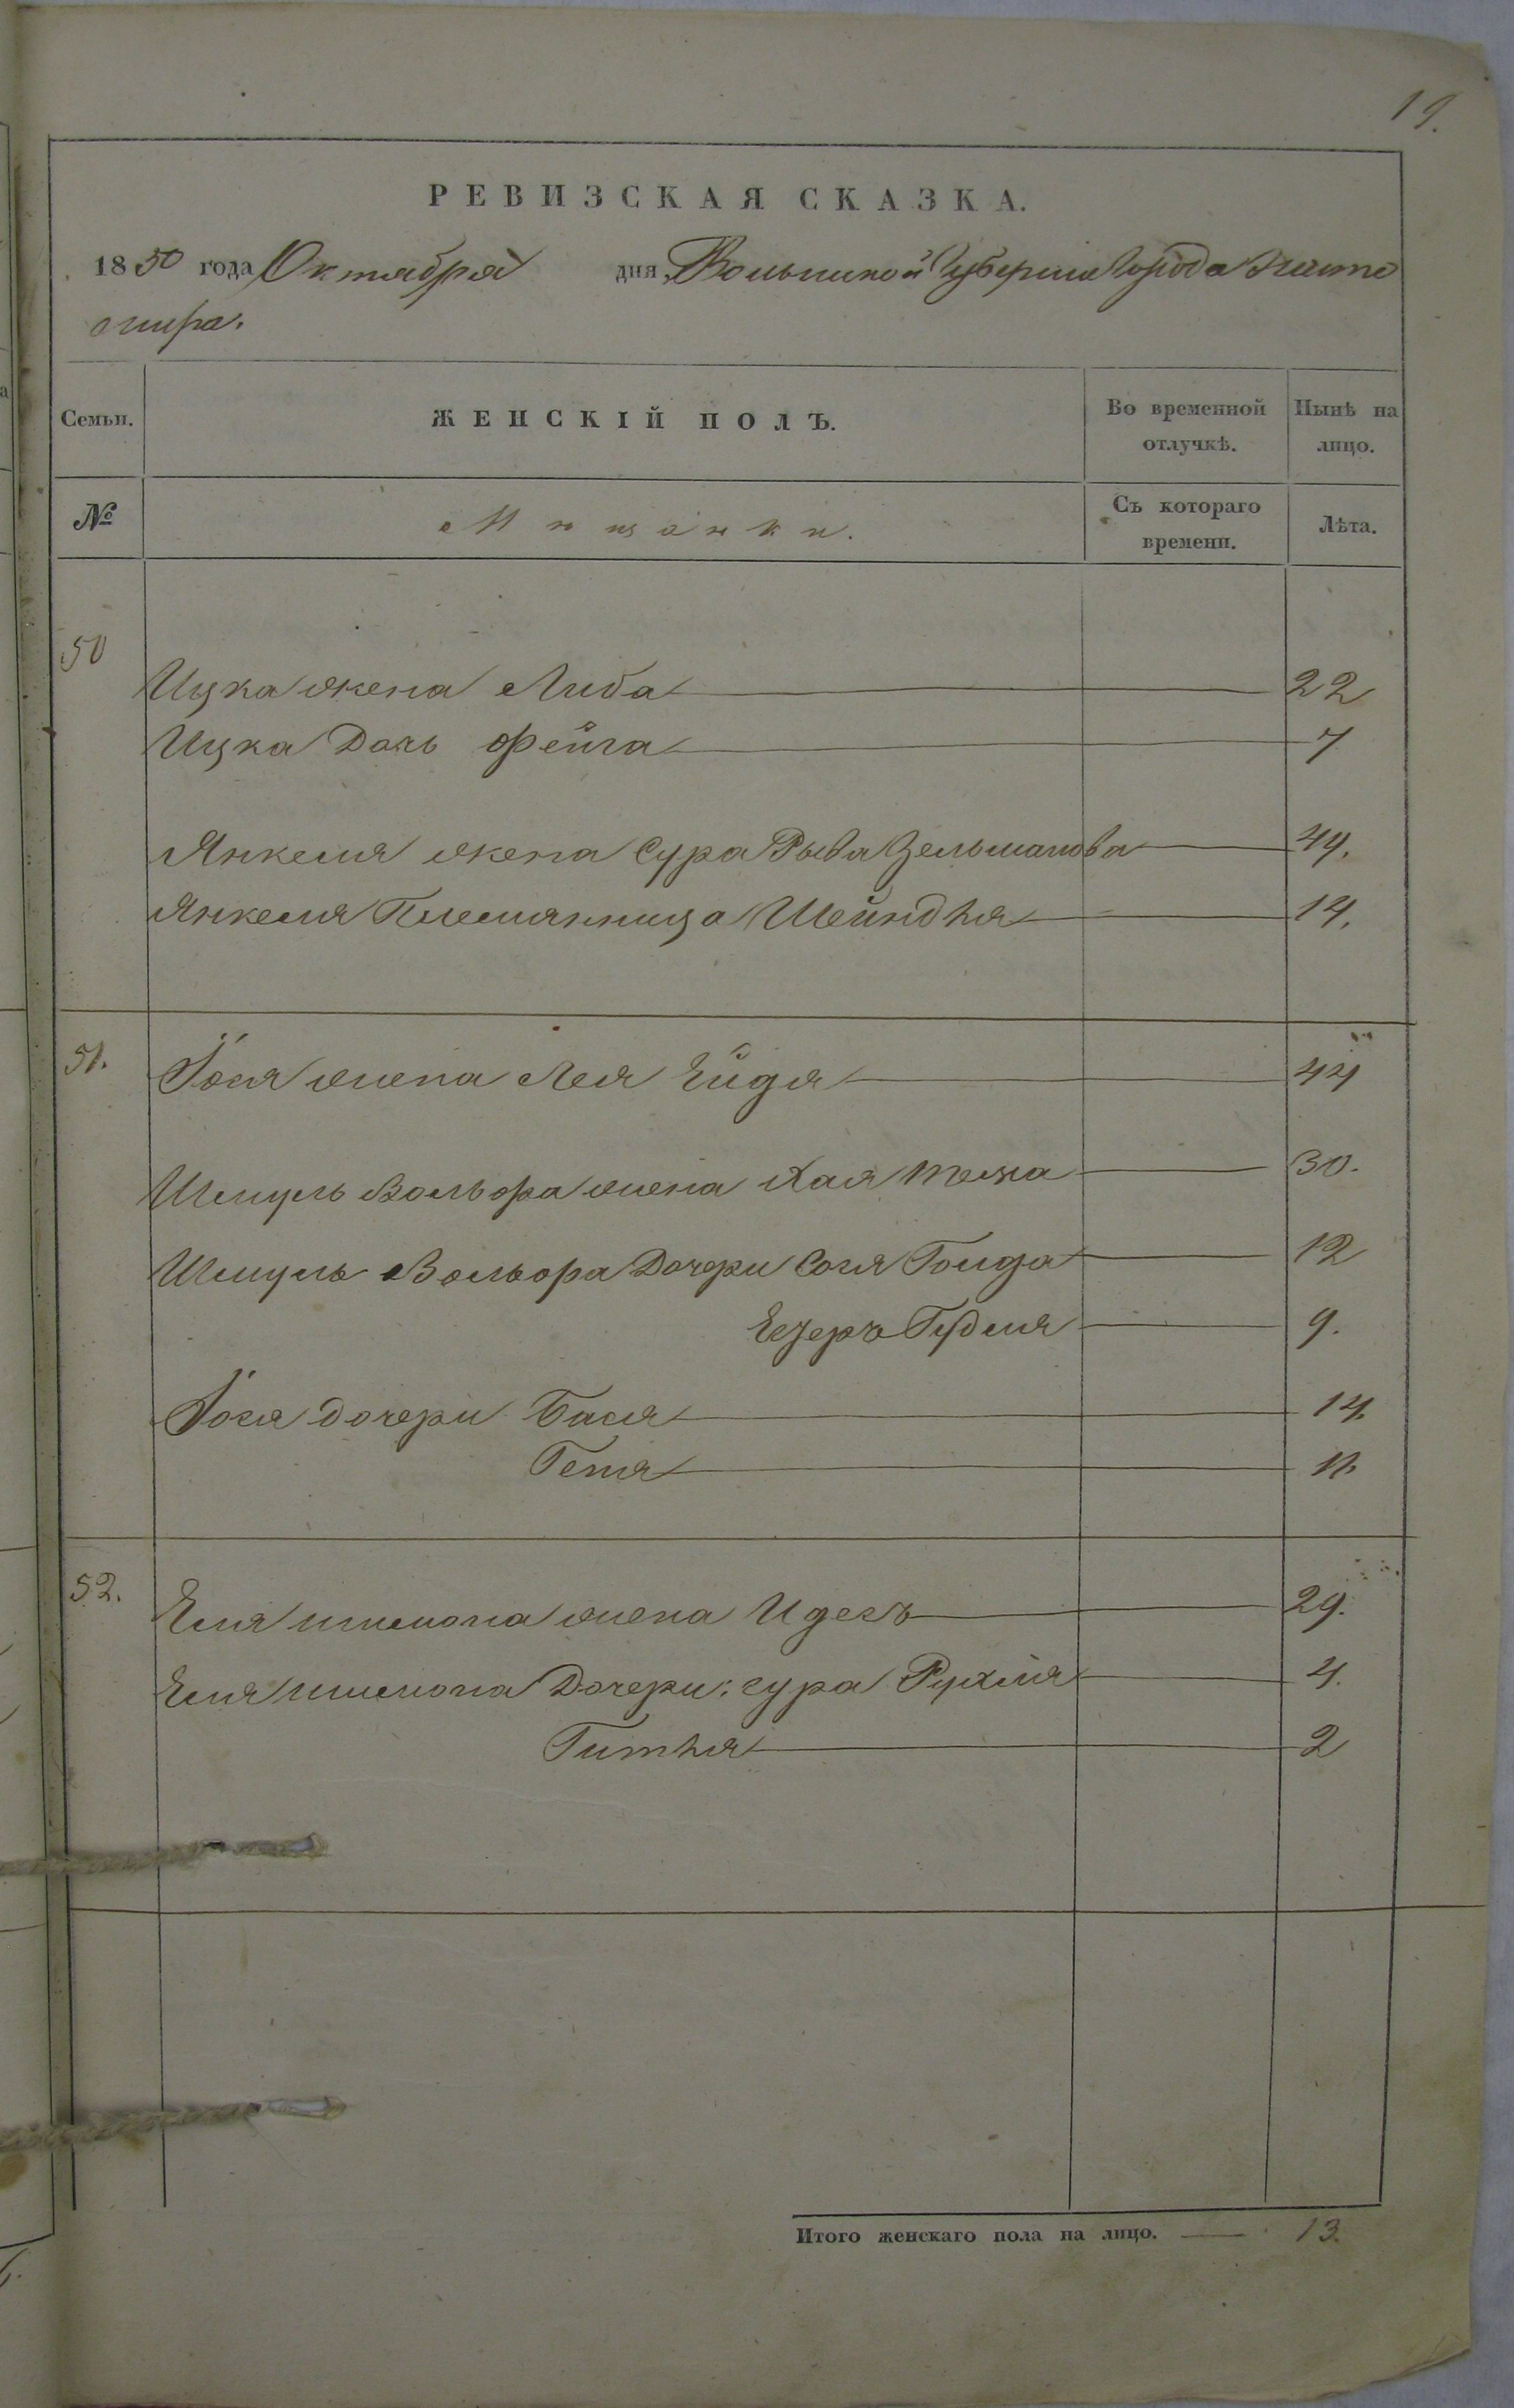 19.
РЕВИЗСКАЯ СКАЗКА.
1850 года Октября дня Волынской Губернии Города Жито
мира.
Семьи. ЖЕНСКІЙ ПОЛЪ. Во временной отлучкѣ. Нынѣ на лицо.
№ Мѣщанки. Съ котораго времени. Лѣта.
50
Ицка жена Либа 22
Ицка Дочь Фейга 7
Янкеля жена Сура Рыва Зельманова 49.
Янкеля Племянница Шейндля 14.
51. Іося жена Лея 44
Шмуль Вольфа жена Хая 30.
Шмуль Вольфа Дочери Сося 12
Естеръ Гудля 9.
Іося дочери Бася 14.
Геня 11.
52. Еля жена Идесъ 29.
Еля Дочери: сура Рухля 4.
Гитля 2
Итого женскаго пола на лицо. 13.